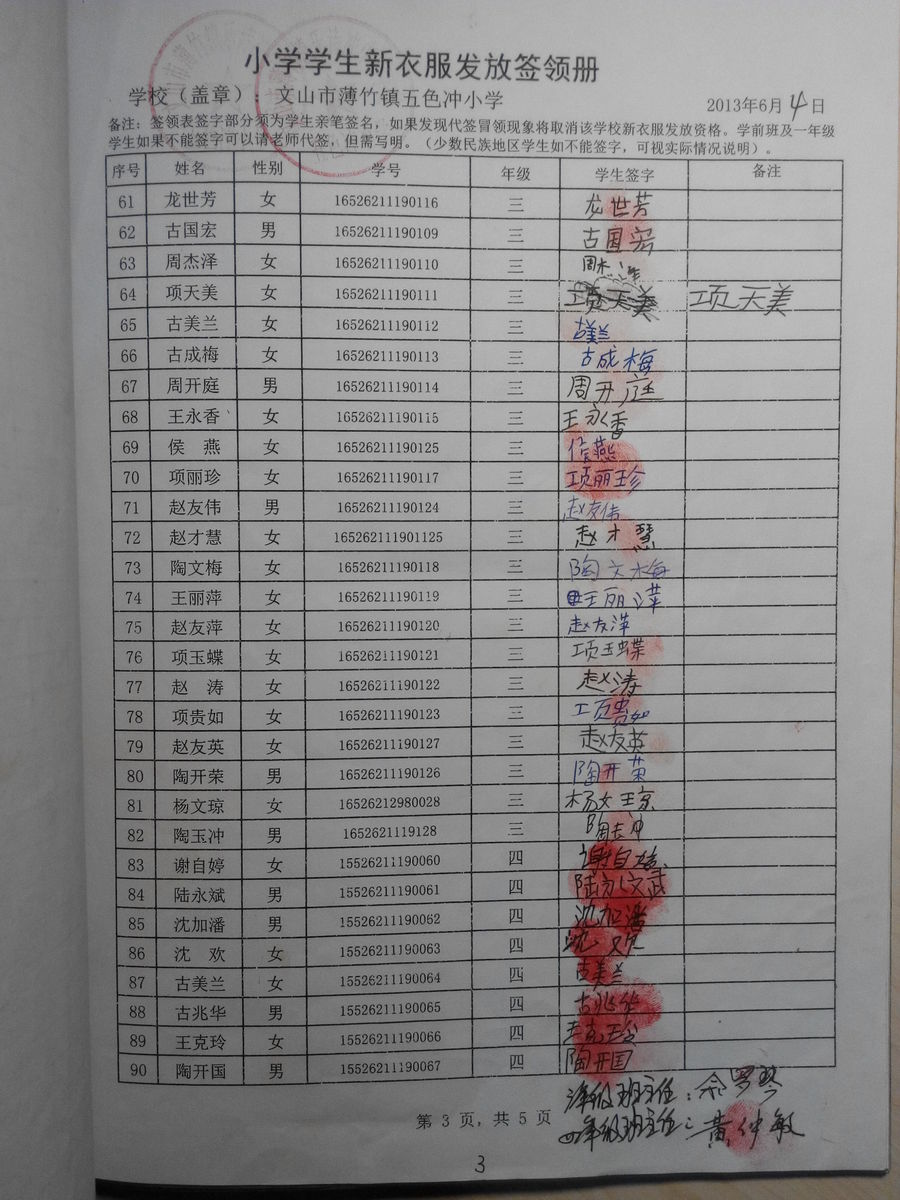 小学学生新衣服发放签领册
学校（盖章）：文山市薄竹镇五色冲小学 2013年6月4日
备注：签领表签字部分须为学生亲笔签名，如果发现代签冒领现象将取消该学校新衣服发放资格。学前班及一年级
学生如果不能签字可以请老师代签，但需写明。（少数民族地区学生如不能签字，可视实际情况说明）。
序号 姓名 性别 学号 年级 学生签字 备注
61 龙世芳 女 16526211190116 三 龙世芳
62 古国宏 男 16526211190109 三 古国宏
63 周杰泽 女 16526211190110 三 周杰泽
64 项天美 女 16526211190111 三 项天美 项天美
65 古美兰 女 16526211190112 三 古美兰
66 古成梅 女 16526211190113 三 古成梅
67 周开庭 男 16526211190114 三 周开庭
68 王永香 女 16526211190115 三 王永香
69 侯 燕 女 16526211190125 三 侯燕
70 项丽珍 女 16526211190117 三 项丽珍
71 赵友伟 男 16526211190124 三 赵友伟
72 赵才慧 女 165262111901125 三 赵才慧
73 陶文梅 女 16526211190118 三 陶文梅
74 王丽萍 女 16526211190119 三 王丽萍
75 赵友萍 女 16526211190120 三 赵友萍
76 项玉蝶 女 16526211190121 三 项玉蝶
77 赵 涛 女 16526211190122 三 赵涛
78 项贵如 女 16526211190123 三 项贵如
79 赵友英 女 16526211190127 三 赵友英
80 陶开荣 男 16526211190126 三 陶开荣
81 杨文琼 女 16526212980028 三 杨文琼
82 陶玉冲 男 1652621119128 三 陶玉冲
83 谢自婷 女 15526211190060 四 谢自婷
84 陆永斌 男 15526211190061 四 陆永斌
85 沈加潘 男 15526211190062 四 沈加潘
86 沈 欢 女 15526211190063 四 沈欢
87 古美兰 女 15526211190064 四 古美兰
88 古兆华 男 15526211190065 四 古兆华
89 王克玲 女 15526211190066 四 王克玲
90 陶开国 男 15526211190067 四 陶开国
年级班主任：余罗琴
第 3 页，共 5 页 四年级班主任：黄仲敏
3